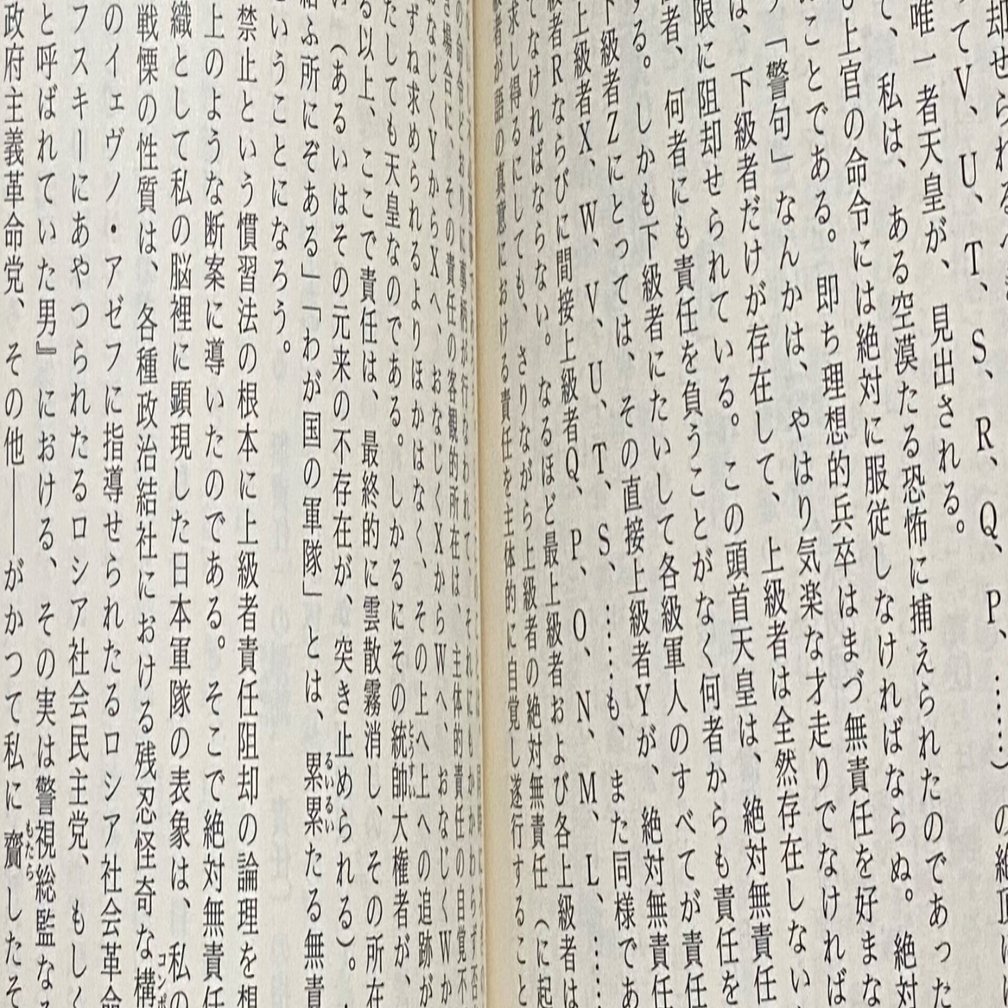 却せられ
ってV、U、T、S、R、Q、P、……）の
唯一者天皇が、見出される。
て、私は、ある空漠たる恐怖に捕えられたのであった
上官の命令には絶対に服従しなければならぬ。絶対
ことである。即ち理想的兵卒はまづ無責任を好まな
」「警句」なんかは、やはり気楽な才走りでなければ
は、下級者だけが存在して、上級者は全然存在しない
限に阻却せられている。この頭首天皇は、絶対無責任
者、何者にも責任を負うことがなく何者からも責任を
する。しかも下級者にたいして各級軍人のすべてが責任
下級者Zにとっては、その直接上級者Yが、絶対無責任
上級者X、W、V、U、T、S、……も、また同様であ
級者Rならびに間接上級者Q、P、O、N、M、L、……
てなければならない。なるほど最上級者および各上級者は
求し得るにしても、さりながら上級者の絶対無責任（に起
者が語の真意における責任を主体的に自覚し遂行すること
場合に、その責任の客観的所在は、主体的責任の自覚不
おなじくYからXへ、おなじくXからWへ、おなじくWか
ずね求められるよりほかはなく、その上へ上への追跡が
たしても天皇なのである。しかるにその統帥大権者が、
る以上、ここで責任は、最終的に雲散霧消し、その所在
い（あるいはその元来の不存在が、突き止められる）。
給ふ所にぞある」「わが国の軍隊」とは、累累たる無責
ということになろう。
禁止という慣習法の根本に上級者責任阻却の論理を想
上のような断案に導いたのである。そこで絶対無責任
織として私の脳裡に顕現した日本軍隊の表象は、私の
戦慄の性質は、各種政治結社における残忍怪奇な構
のイェヴノ・アゼフに指導せられたるロシア社会革命
フスキーにあやつられたるロシア社会民主党、もしく
と呼ばれていた男』における、その実は警視総監なる
政府主義革命党、その他――がかつて私に齎したそ